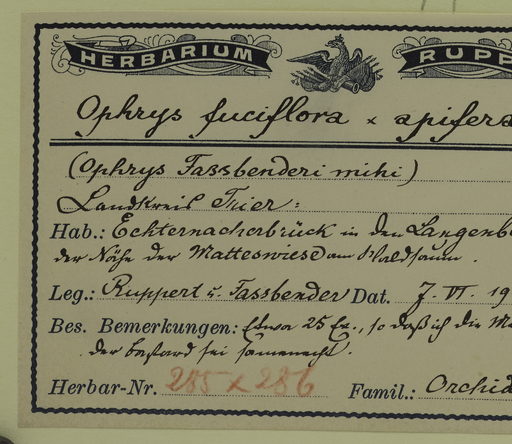 HERBARIUM RUPP
Ophrys fuciflora x apifera
(Ophrys Fassbenderi mihi)
Landkreis Trier:
Hab.: Echternacherbrück in den Langenb
der Nähe der Matteswiese am Waldsaum.
Leg.: Ruppert u. Fassbender Dat. 7. VI. 19
Bes. Bemerkungen: Etwa 25 Ex., so daß ich die M
der Bastard sei samenecht.
Herbar-Nr. 285 x 286 Famil.: Orchid